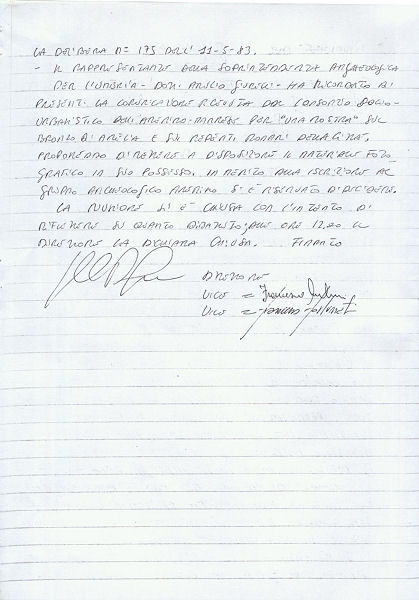 LA DELIBERA N= 175 DELL' 11-5-83.
- IL RAPPRESENTANTE DELLA SOPRINTENDENZA ARCHEOLOGICA
PER L'UMBRIA - DOTT. - HA RICORDATO AI
PRESENTI LA COMUNICAZIONE RICEVUTA DAL CONSORZIO SOCIO-
URBANISTICO DELL'AMERINO-NARNESE PER "UNA MOSTRA" SUL
BRONZO DI AMELIA E SUI REPERTI ROMANI DELLA ZONA,
PROPONENDO DI METTERE A DISPOSIZIONE IL MATERIALE FOTO
GRAFICO IN SUO POSSESSO. IN MERITO ALLA ISCRIZIONE AL
GRUPPO ARCHEOLOGICO AMERINO S' È RISERVATO DI DECIDERE.
LA RIUNIONE SI È CHIUSA CON L'INTENTO DI
RIFLETTERE SU QUANTO DIBATTUTO; ALLE ORE 12,20 IL
DIRETTORE LA DICHIARA CHIUSA. FIRMATO
DIRETTORE
VICE = Francesco
VICE =